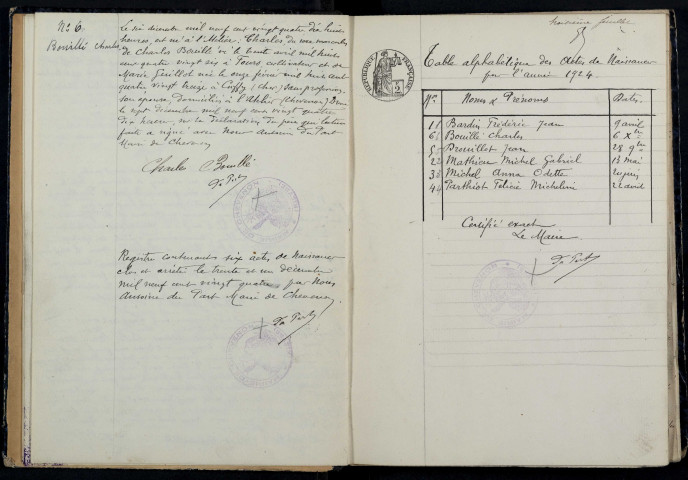 No 6.
Bouillé Charles
Le six décembre mil neuf cent vingt quatre dix huit
heures, est né à l'Atelier, Charles, du sexe masculin
de Charles Bouillé né le trente avril mil huit
cent quatre vingt six à Tours, cultivateur et de
Marie Guillot née le onze février mil huit cent
quatre vingt treize à Cuffy (Cher), sans profession
son épouse, domiciliés à l'Atelier (Chevenon) Dressé
le sept décembre mil neuf cent vingt quatre
dix heures, sur la déclaration du père qui lecture
faite a signé avec Nous Antoine du Part
Maire de Chevenon
Charles Bouillé
Du Part
Registre contenant six actes de Naissances
clos et arrêté le trente et un décembre
mil neuf cent vingt quatre par Nous
Antoine du Part Maire de Chevenon
Du Part
feuillet
REPUBLIQUE FRANCAISE
Table alphabétique des Actes de Naissances
pour l'année 1924.
Nos Noms & Prénoms Dates
11 Bardin Frédéric Jean 9 avril
6 Bouillé Charles 6 Xbre
5 Brouillet Jean 28 9bre
22 Mathieu Michel Gabriel 13 mai
33 Michel Anna Odette juin
44 Parthiot Félicie Micheline 22 avril
Certifié exact
Le Maire
Du Part